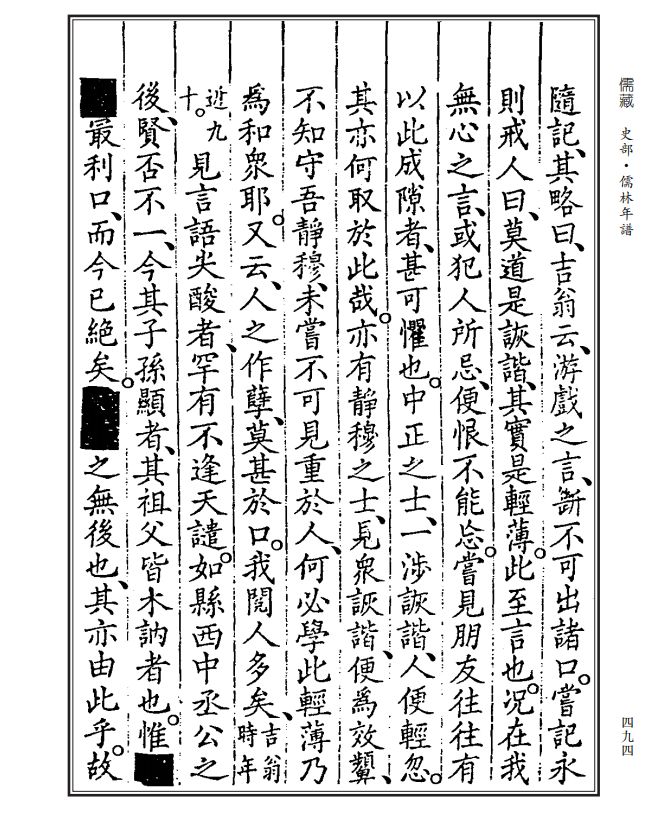 儒藏 史部·儒林年譜
隨記、其略曰、吉翁云、游戲之言、斷不可出諸口。嘗記永
則戒人曰、莫道是詼諧、其實是輕薄。此至言也。況在我
無心之言、或犯人所忌、便恨不能忘。嘗見朋友往往有
以此成隙者、甚可懼也。中正之士、一涉詼諧、人便輕忽。
其亦何取於此哉。亦有靜穆之士、見衆詼諧、便爲效顰、
不知守吾靜穆、未嘗不可見重於人、何必學此輕薄乃
爲和衆耶。又云、人之作孽、莫甚於口。我閱人多矣、吉翁時年
近九十。見言語尖酸者、罕有不逢天譴。如縣西中丞公之
後、賢否不一、今其子孫顯者、其祖父皆木訥者也。惟
最利口、而今已絕矣。之無後也、其亦由此乎。故
四九四